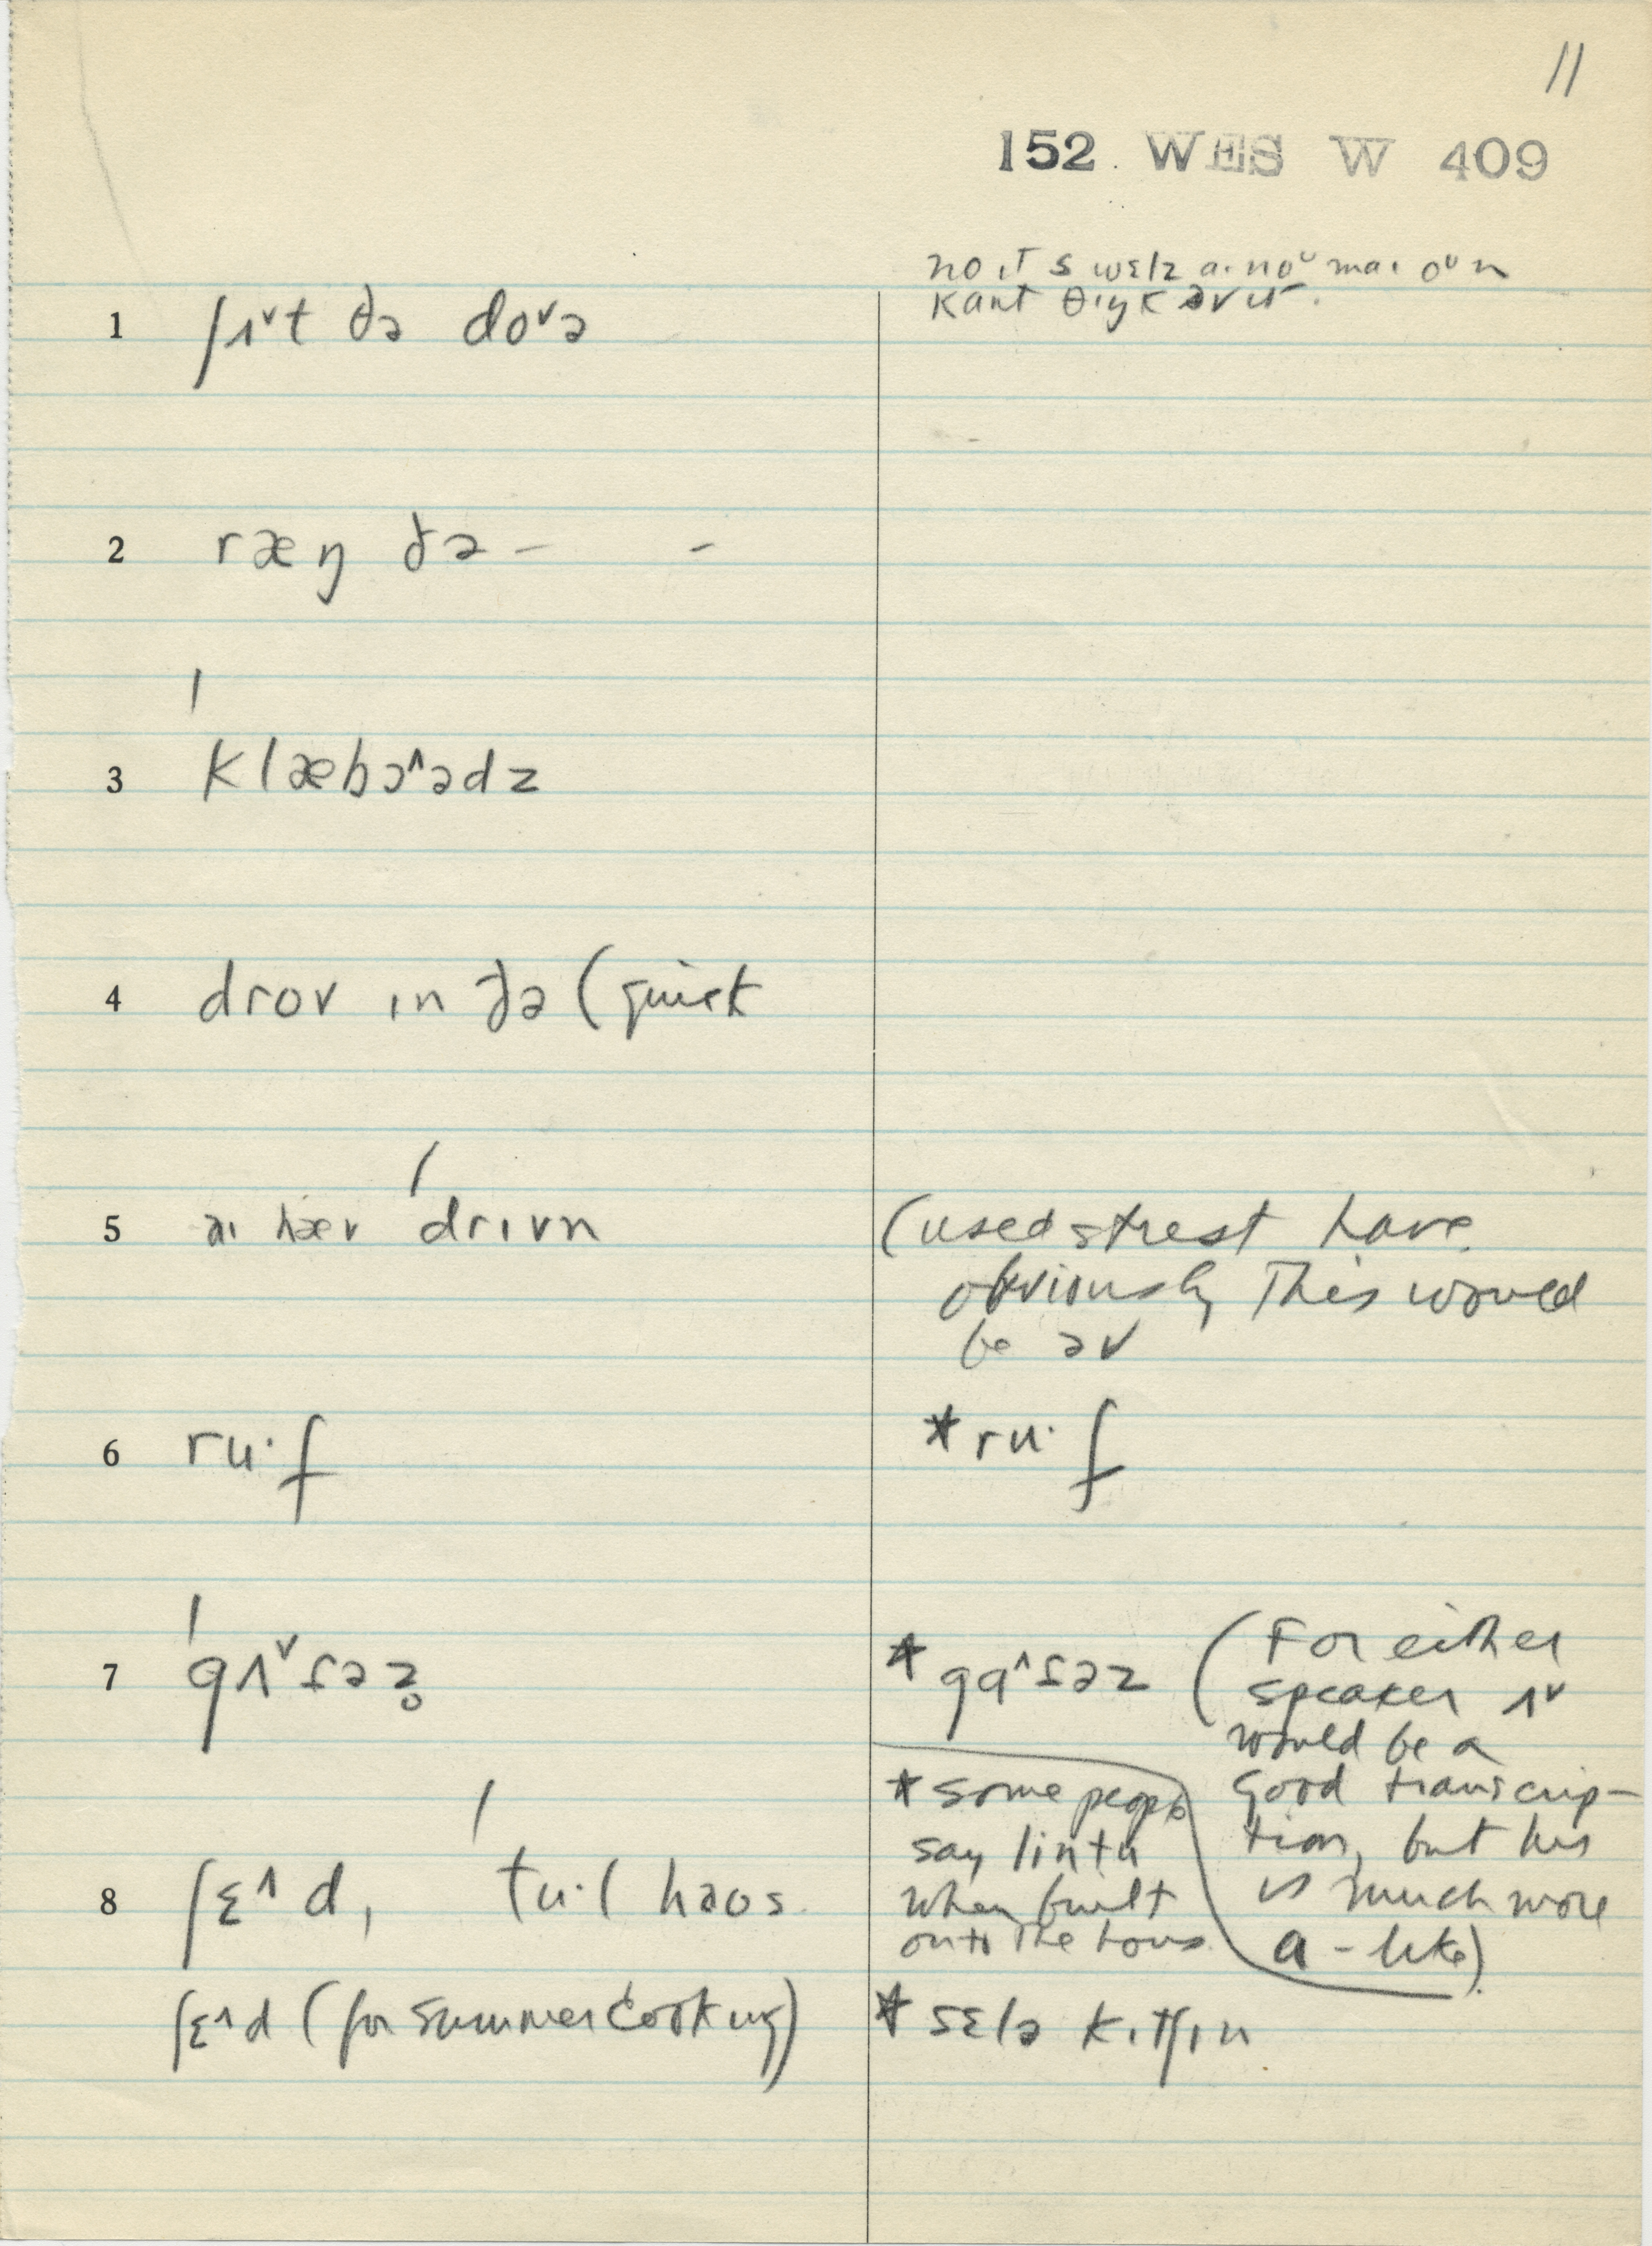 11
152 WES W 409
no ɪt s wɛlz aɪ noᵁ maɪ oᵁn
kant θɪŋk əv ɪt.
1 ʃʌ˅t ðə do˅ə
2 ræŋ ðə – –
3 ˈklæbɔ˄ədz
4 drov ɪn ðə (quick
5 aɪ hæv ˈdrɪvn
(used strest have
obviously This would
be əv
6 ru·f
*ru·f
7 ˈgʌ˅təz̥
*ga˄təz (For either
speaker ʌ˅
would be a
good transcrip-
tion, but his
is much more
a - like)
*some people
say lintu
when built
onto the hous
8 ʃɛ˄d, ˈtu·l haos
ʃɛ˄d (for summer cooking)
*sɛlə kɪtʃɪn